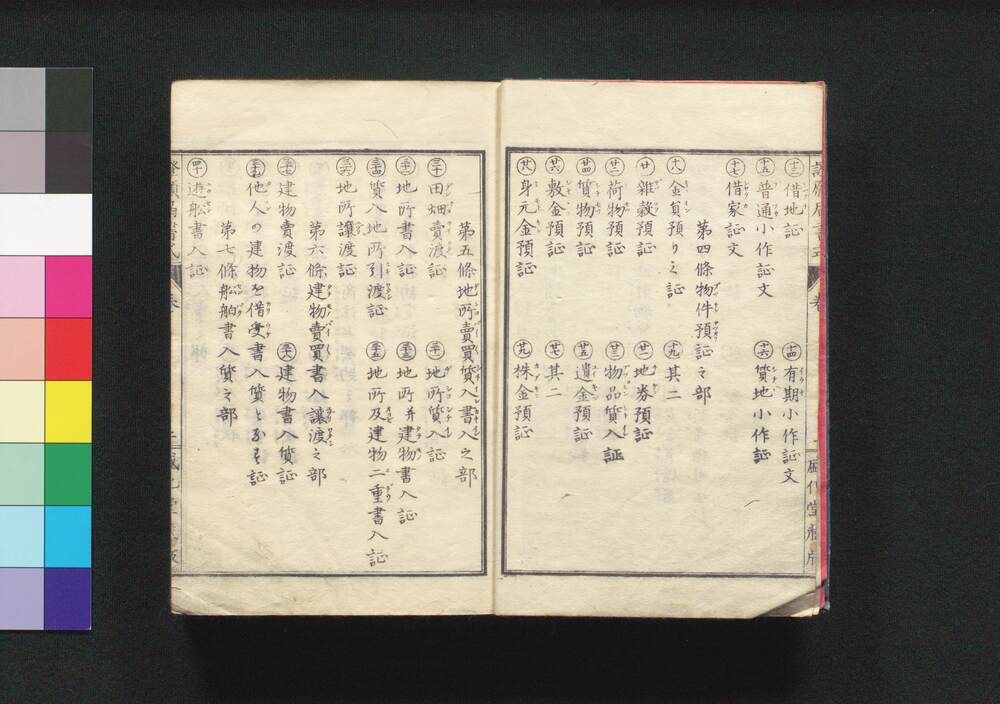 十三 借地証 十四 有期小作証文
十五 普通小作証文 十六 質地小作証
十七 借家証文
第四條物件預証之部
十八 金員預り之証 十九 其二
廿 雜穀預証 廿一 地券預証
廿二 荷物預証 廿三 物品質入証
廿四 質物預証 廿五 遺金預証
廿六 敷金預証 廿七 其二
廿八 身元金預証 廿九 株金預証
第五條地所賣買質入書入之部
三十 田畑賣渡証 三十一 地所質入証
三十二 地所書入証 三十三 地所并建物書入証
三十四 質入地所引渡証 三十五 地所及建物二重書入証
三十六 地所讓渡証
第六條建物賣買書入讓渡之部
三十七 建物賣渡証 三十八 建物書入質証
三十九 他人の建物を借受書入質となす証
第七條船舶書入質之部
四十 船書入証